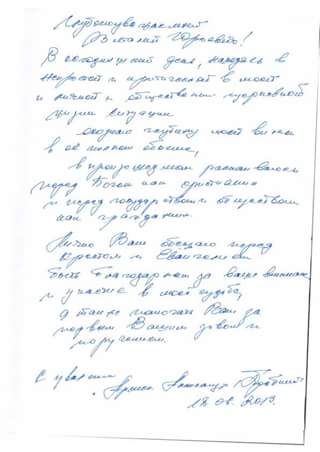 Глубокоуважаемый
Виталий Егорович!
В сегодняшний день, находясь в
непростой и критической в моей
и личной и общественно
жизни ситуации
осознаю глубину моей вины
в её полном объеме,
в произошедшем раскаиваюсь
перед Богом как христианин
и перед государством и обществом
как гражданин.
Лично Вам обещаю перед
крестом и Евангелием
быть благодарным за ваше внимание
и участие в моей судьбе,
а также помогать Вам за
первым Вашим зовом и
поручением.
С уважением
Александр
18.08.2013.